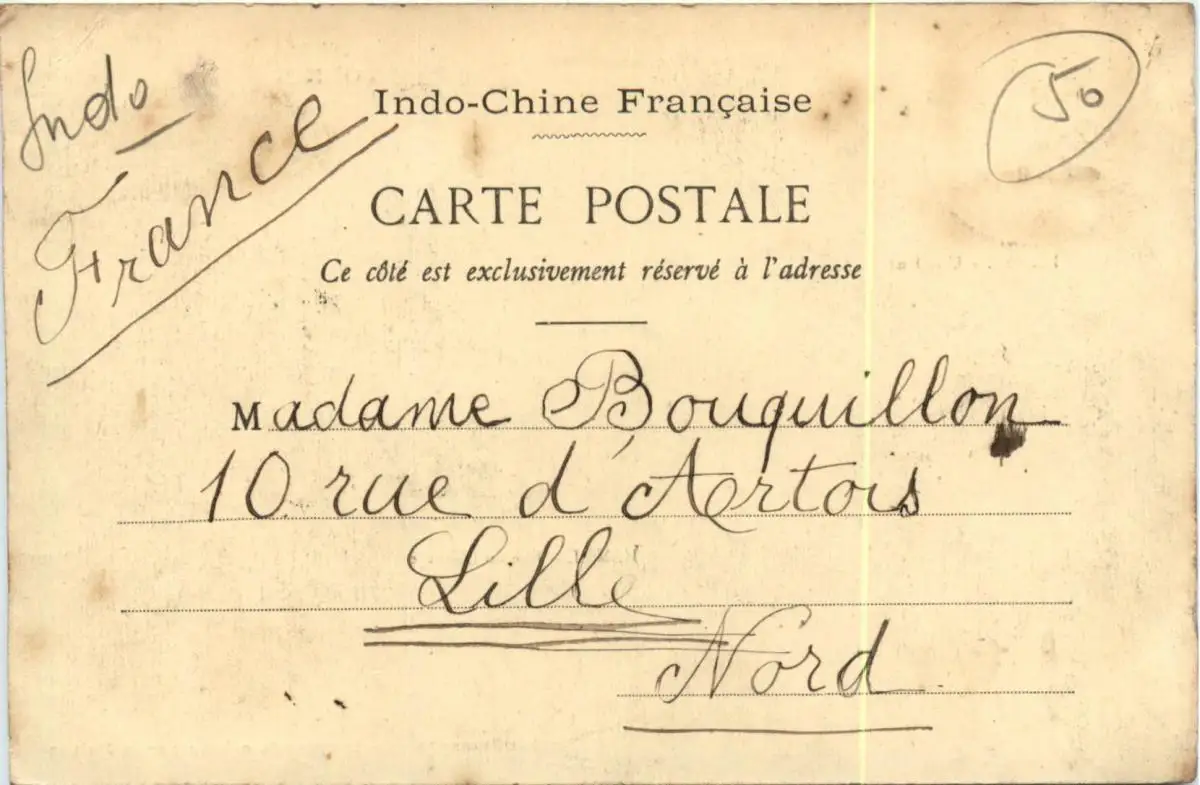 Indo
France
50
Indo-Chine Française
CARTE POSTALE
Ce côté est exclusivement réservé à l'adresse
Madame Bouquillon
10 rue d'Artois
Lille
Nord